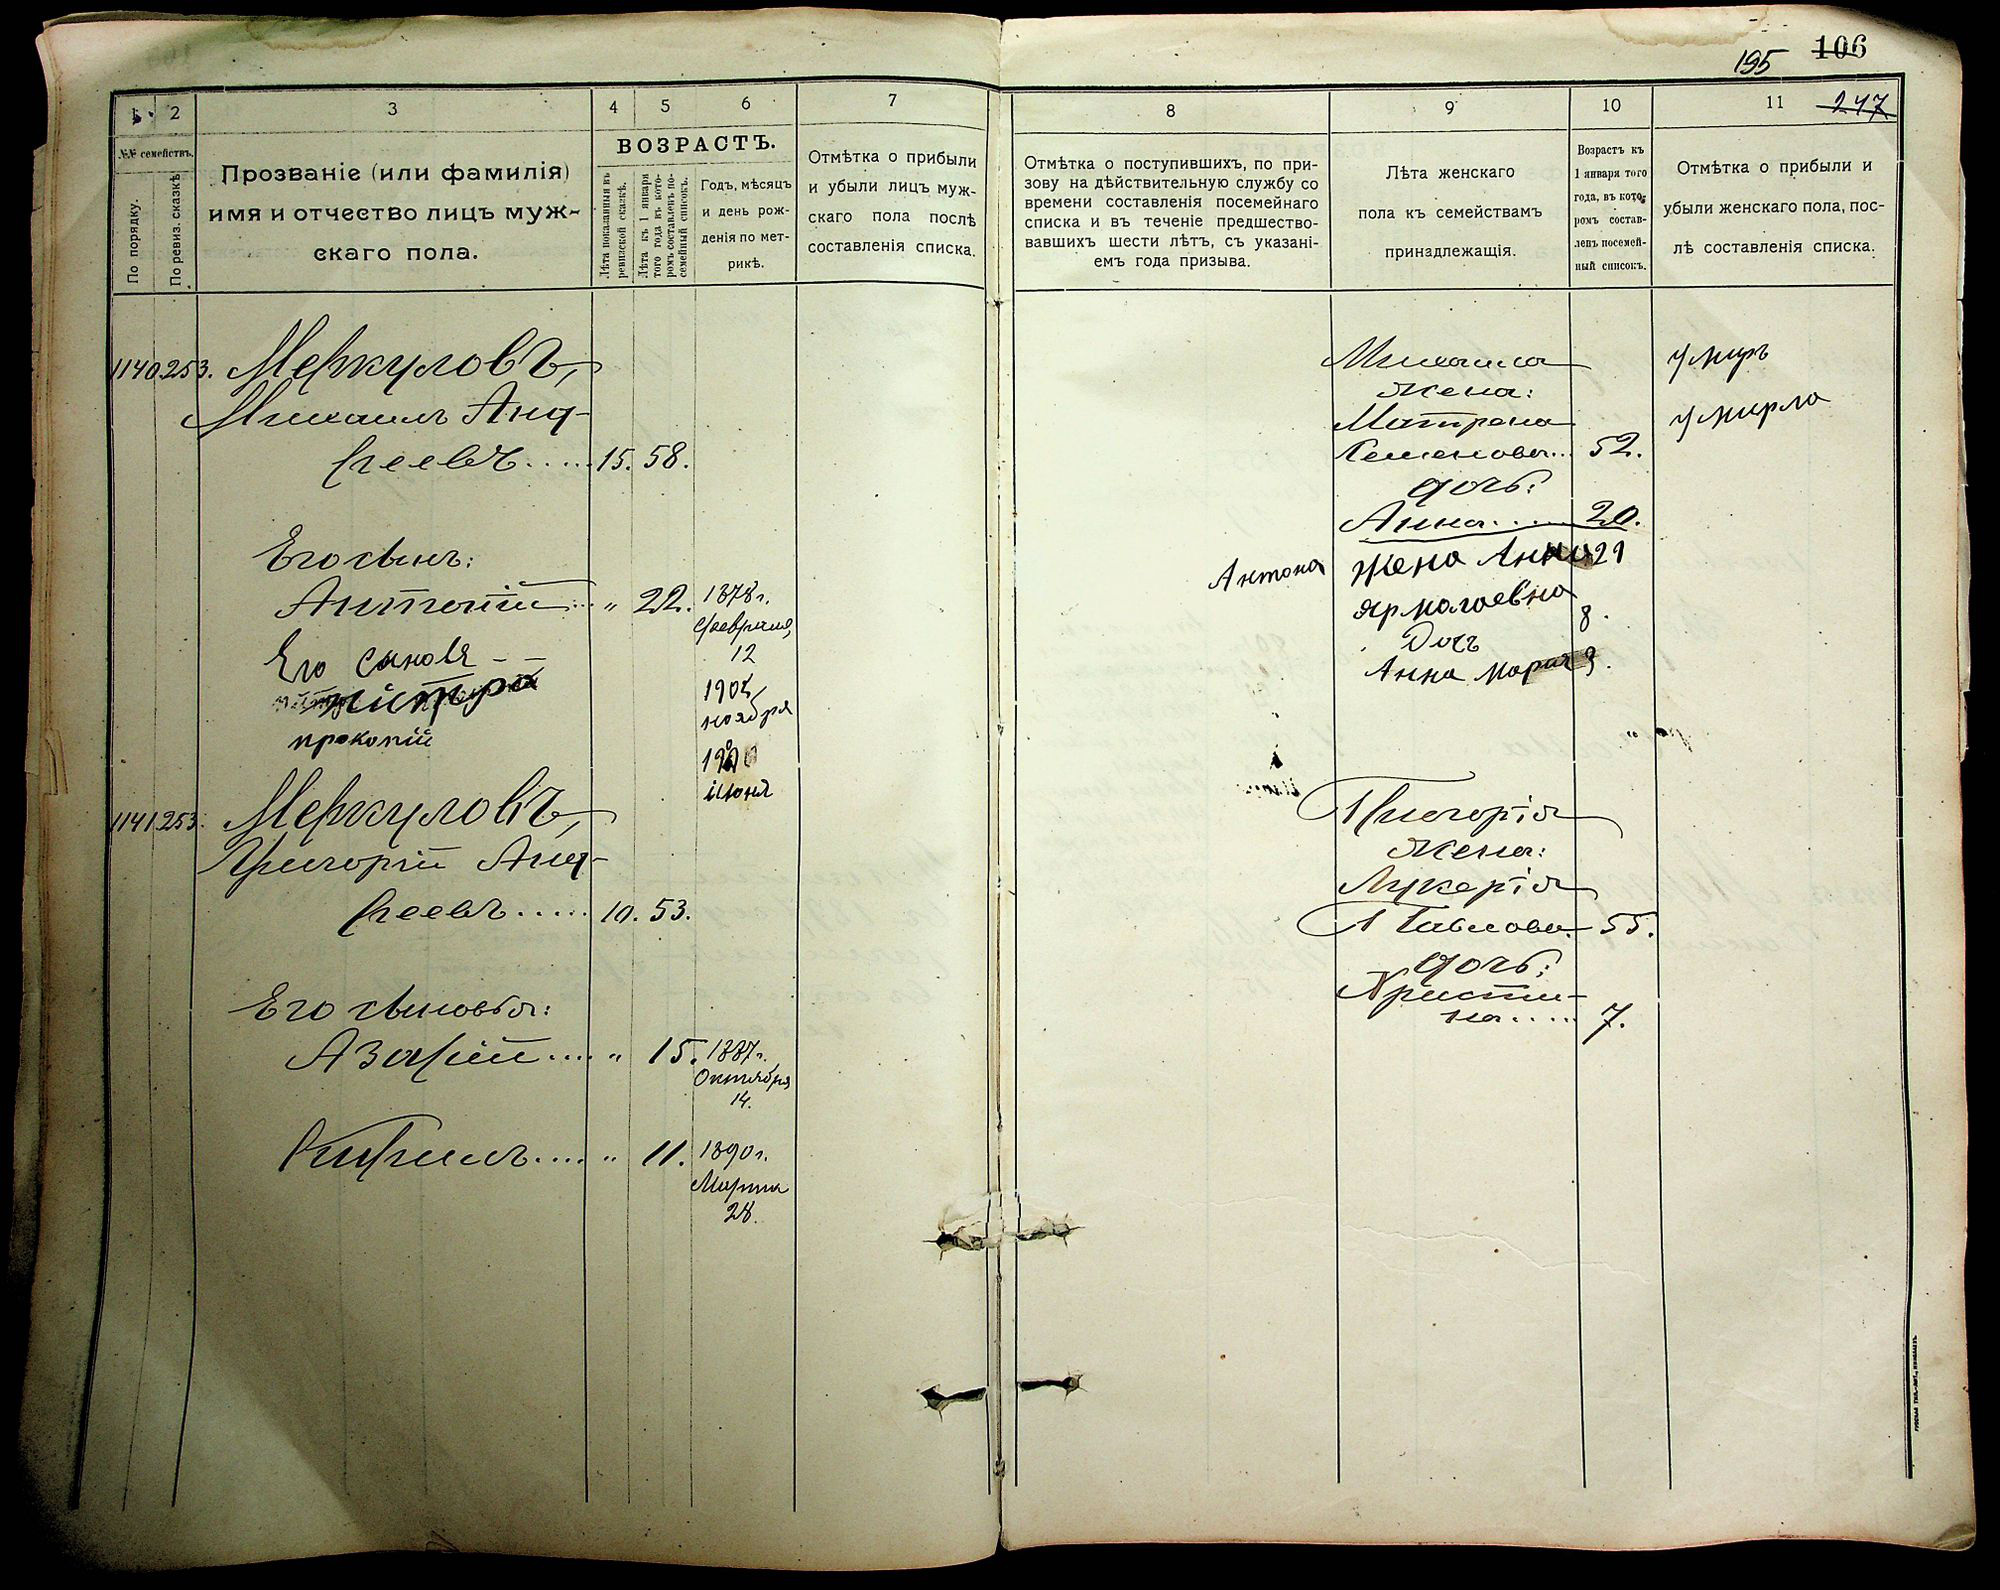 195 106
1 2 3 4 5 6 7
№№ семействъ.
По порядку.
По ревиз. сказкѣ
Прозваніе (или фамилія)
имя и отчество лицъ муж-
скаго пола.
ВОЗРАСТЪ.
Лѣта показанныя въ
ревизской сказкѣ.
Лѣта къ 1 января
того года къ кото-
ромъ составленъ по-
семейный списокъ.
Годъ, мѣсяцъ
и день рож-
денія по мет-
рикѣ.
Отмѣтка о прибыли
и убыли лицъ муж-
скаго пола послѣ
составленія списка.
1140. 253. Меркуловъ,
Михаилъ Анд-
реевъ..... 15. 58.
Его сынъ:
Антоній... " 22. 1878 г.
Февраля,
12
Его сыновя - -
прокопій
ноября
июня
1141. 253. Меркуловъ,
Григорій Анд-
реевъ..... 10. 53.
Его сыновья:
Азарій.... " 15. 1887 г.
Октября
14.
Кирилъ.... " 11. 1890 г.
Марта
28.
8 9 10 11 247
Отмѣтка о поступившихъ, по при-
зову на дѣйствительную службу со
времени составленія посемейнаго
списка и въ теченіе предшество-
вавшихъ шести лѣтъ, съ указані-
емъ года призыва.
Лѣта женскаго
пола къ семействамъ
принадлежащія.
Возрастъ къ
1 января того
года, въ кото-
ромъ состав-
ленъ посемей-
ный списокъ.
Отмѣтка о прибыли и
убыли женскаго пола, пос-
лѣ составленія списка.
Михаила умиръ
жена:
Матрена умирла
Семенова.. 52.
дочь:
Анна..... 20.
Антона жена Анна 29
Ярмолаевна
8.
Дочь
Анна Мария 3.
Григорія
жена:
Лукерія
Павлова. 55.
дочь:
Христи-
на..... 7.